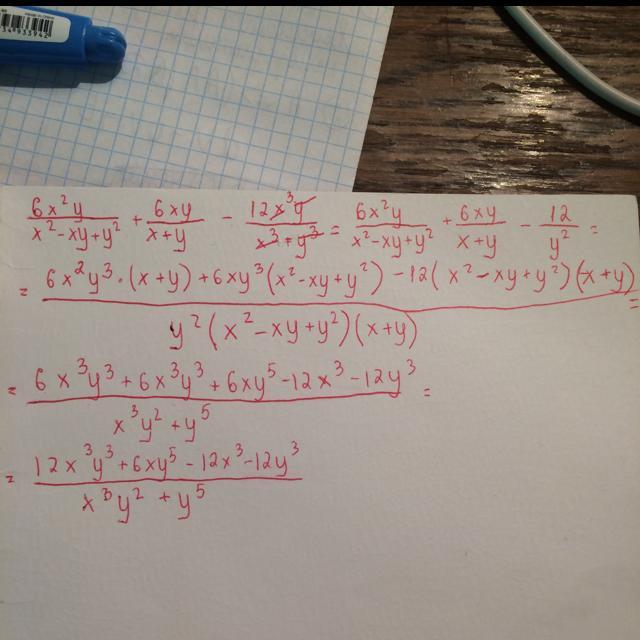 34933942
6x²y/(x²-xy+y²) + 6xy/(x+y) - 12x³y/(x³+y³) = 6x²y/(x²-xy+y²) + 6xy/(x+y) - 12/y² =
= (6x²y³·(x+y)+6xy³(x²-xy+y²)-12(x²-xy+y²)(x+y))/(y²(x²-xy+y²)(x+y)) =
= (6x³y³+6x³y³+6xy⁵-12x³-12y³)/(x³y²+y⁵) =
= (12x³y³+6xy⁵-12x³-12y³)/(x³y²+y⁵)